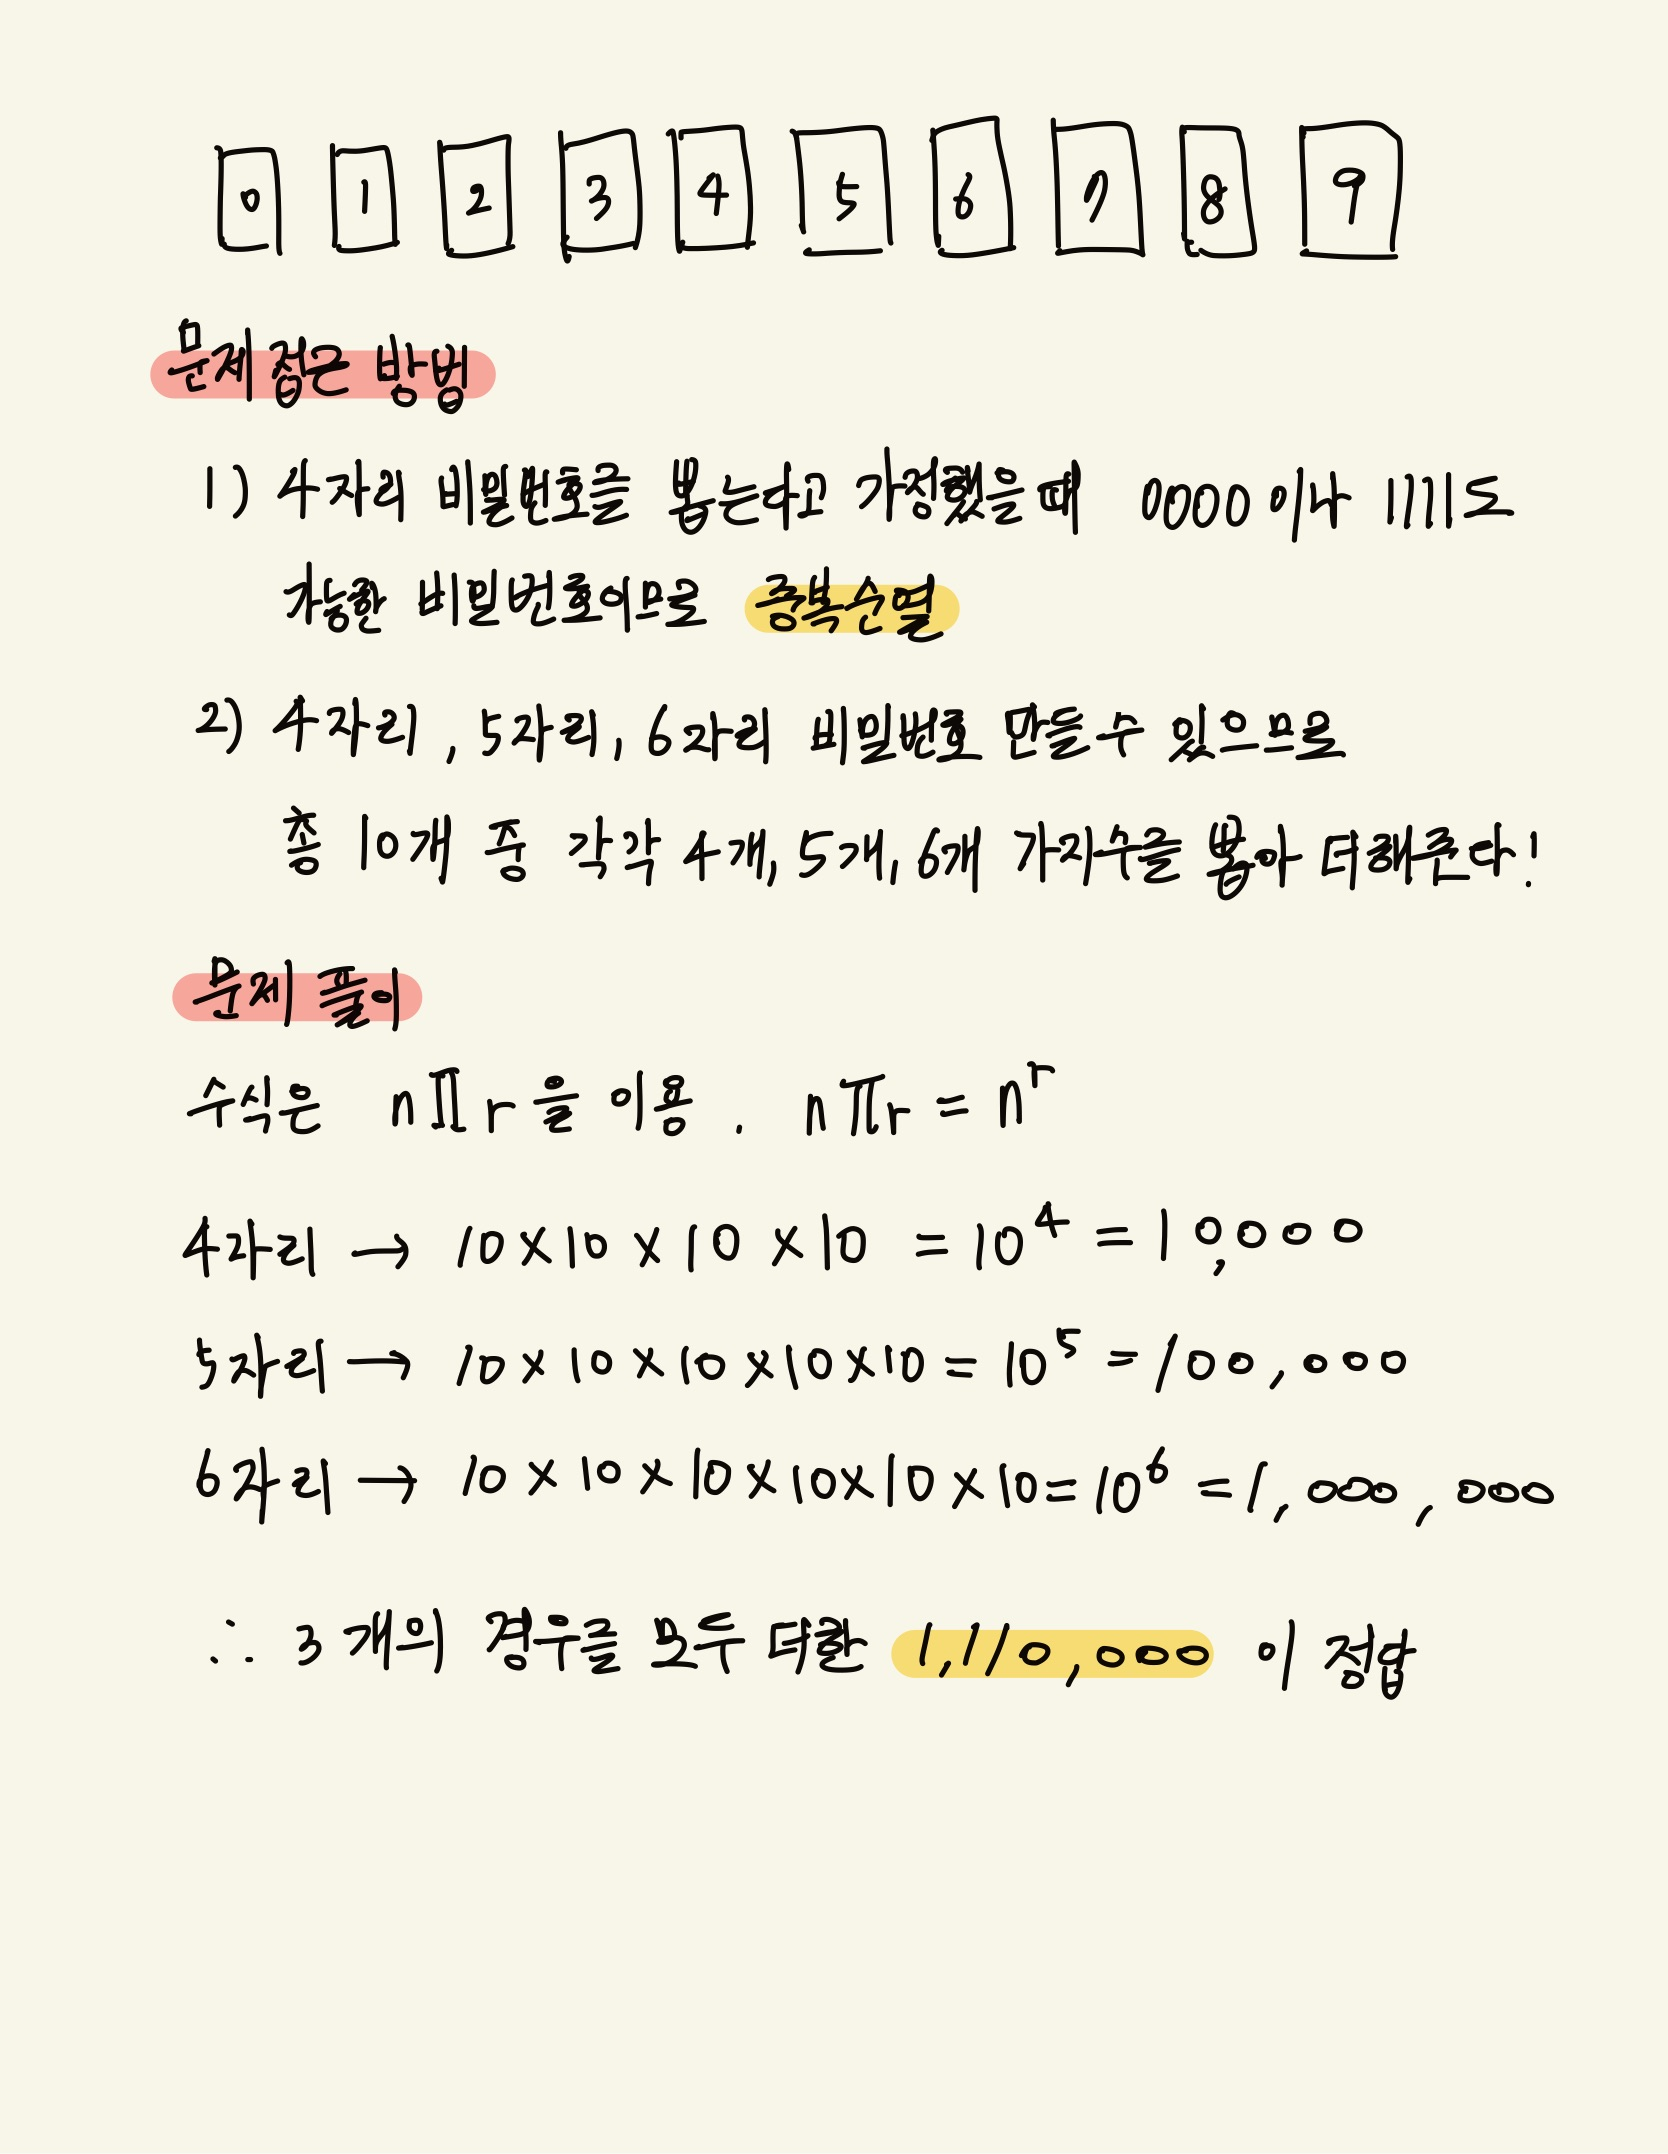 0 1 2 3 4 5 6 7 8 9
문제 접근 방법
1) 4자리 비밀번호를 뽑는다고 가정했을 때 0000 이나 1111도
가능한 비밀번호이므로 중복순열
2) 4자리, 5자리, 6자리 비밀번호 만들 수 있으므로
총 10개 중 각각 4개, 5개, 6개 가지수를 뽑아 더해준다!
문제 풀이
수식은 nΠr을 이용. nπr = n^r
4자리 → 10 × 10 × 10 × 10 = 10^4 = 10,000
5자리 → 10 × 10 × 10 × 10 × 10 = 10^5 = 100,000
6자리 → 10 × 10 × 10 × 10 × 10 × 10 = 10^6 = 1,000,000
∴ 3개의 경우를 모두 더한 1,110,000 이 정답